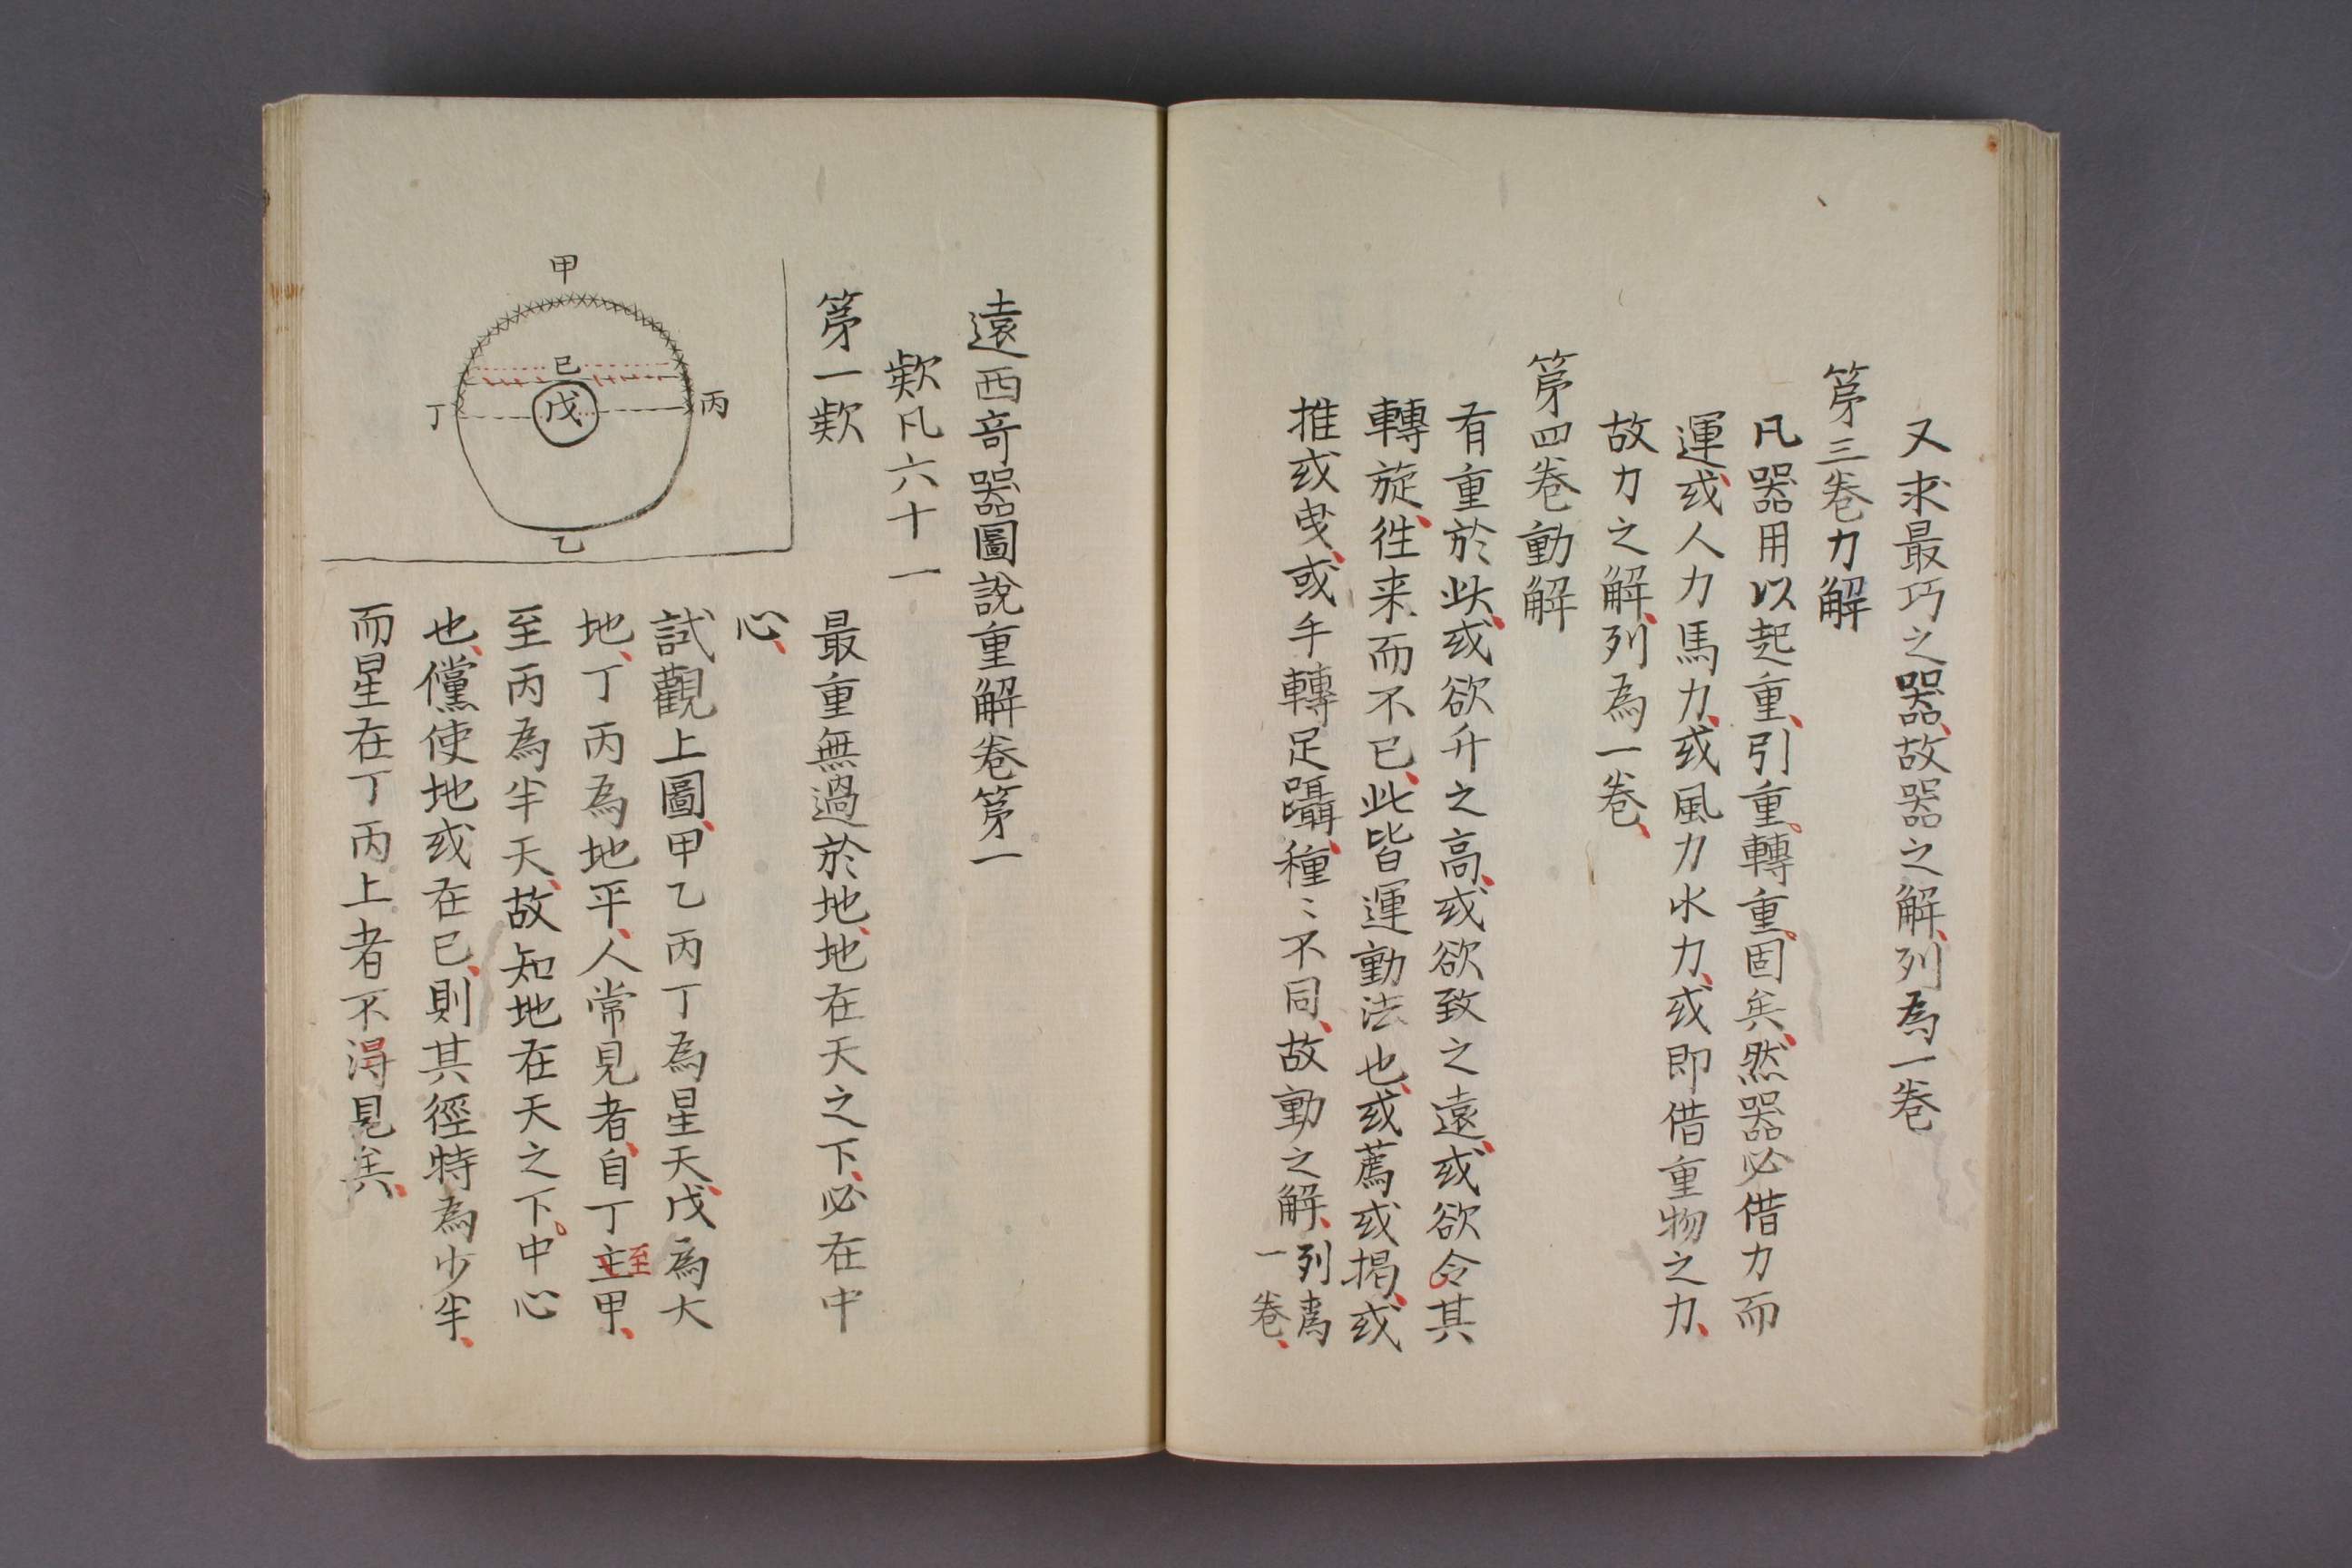 又求最巧之器、故器之解、列為一卷
第三卷力解
凡器用以起重、引重。轉重。固矣、然器必借力而
運、或人力馬力、或風力水力、或即借重物之力、
故力之解、列為一卷、
第四卷動解
有重於此、或欲升之高、或欲致之遠、或欲令其
轉旋、徃来、而不已、此皆運動法也、或薦或揭、或
推或曳、或手轉足躡、種〻不同、故動之解、列為
一卷、
遠西奇器圖說重解卷第一
欵凡六十一
第一欵
最重無過於地、地在天之下、必在中
心、
試觀上圖、甲乙丙丁為星天、戊為大
地、丁丙為地平、人常見者、自丁主甲、
至
至丙為半天、故知地在天之下。中心
也、儻使地或在已、則其徑特為少半、
而星在丁丙上者不淂見矣、
甲
已
戊
丁
丙
乙